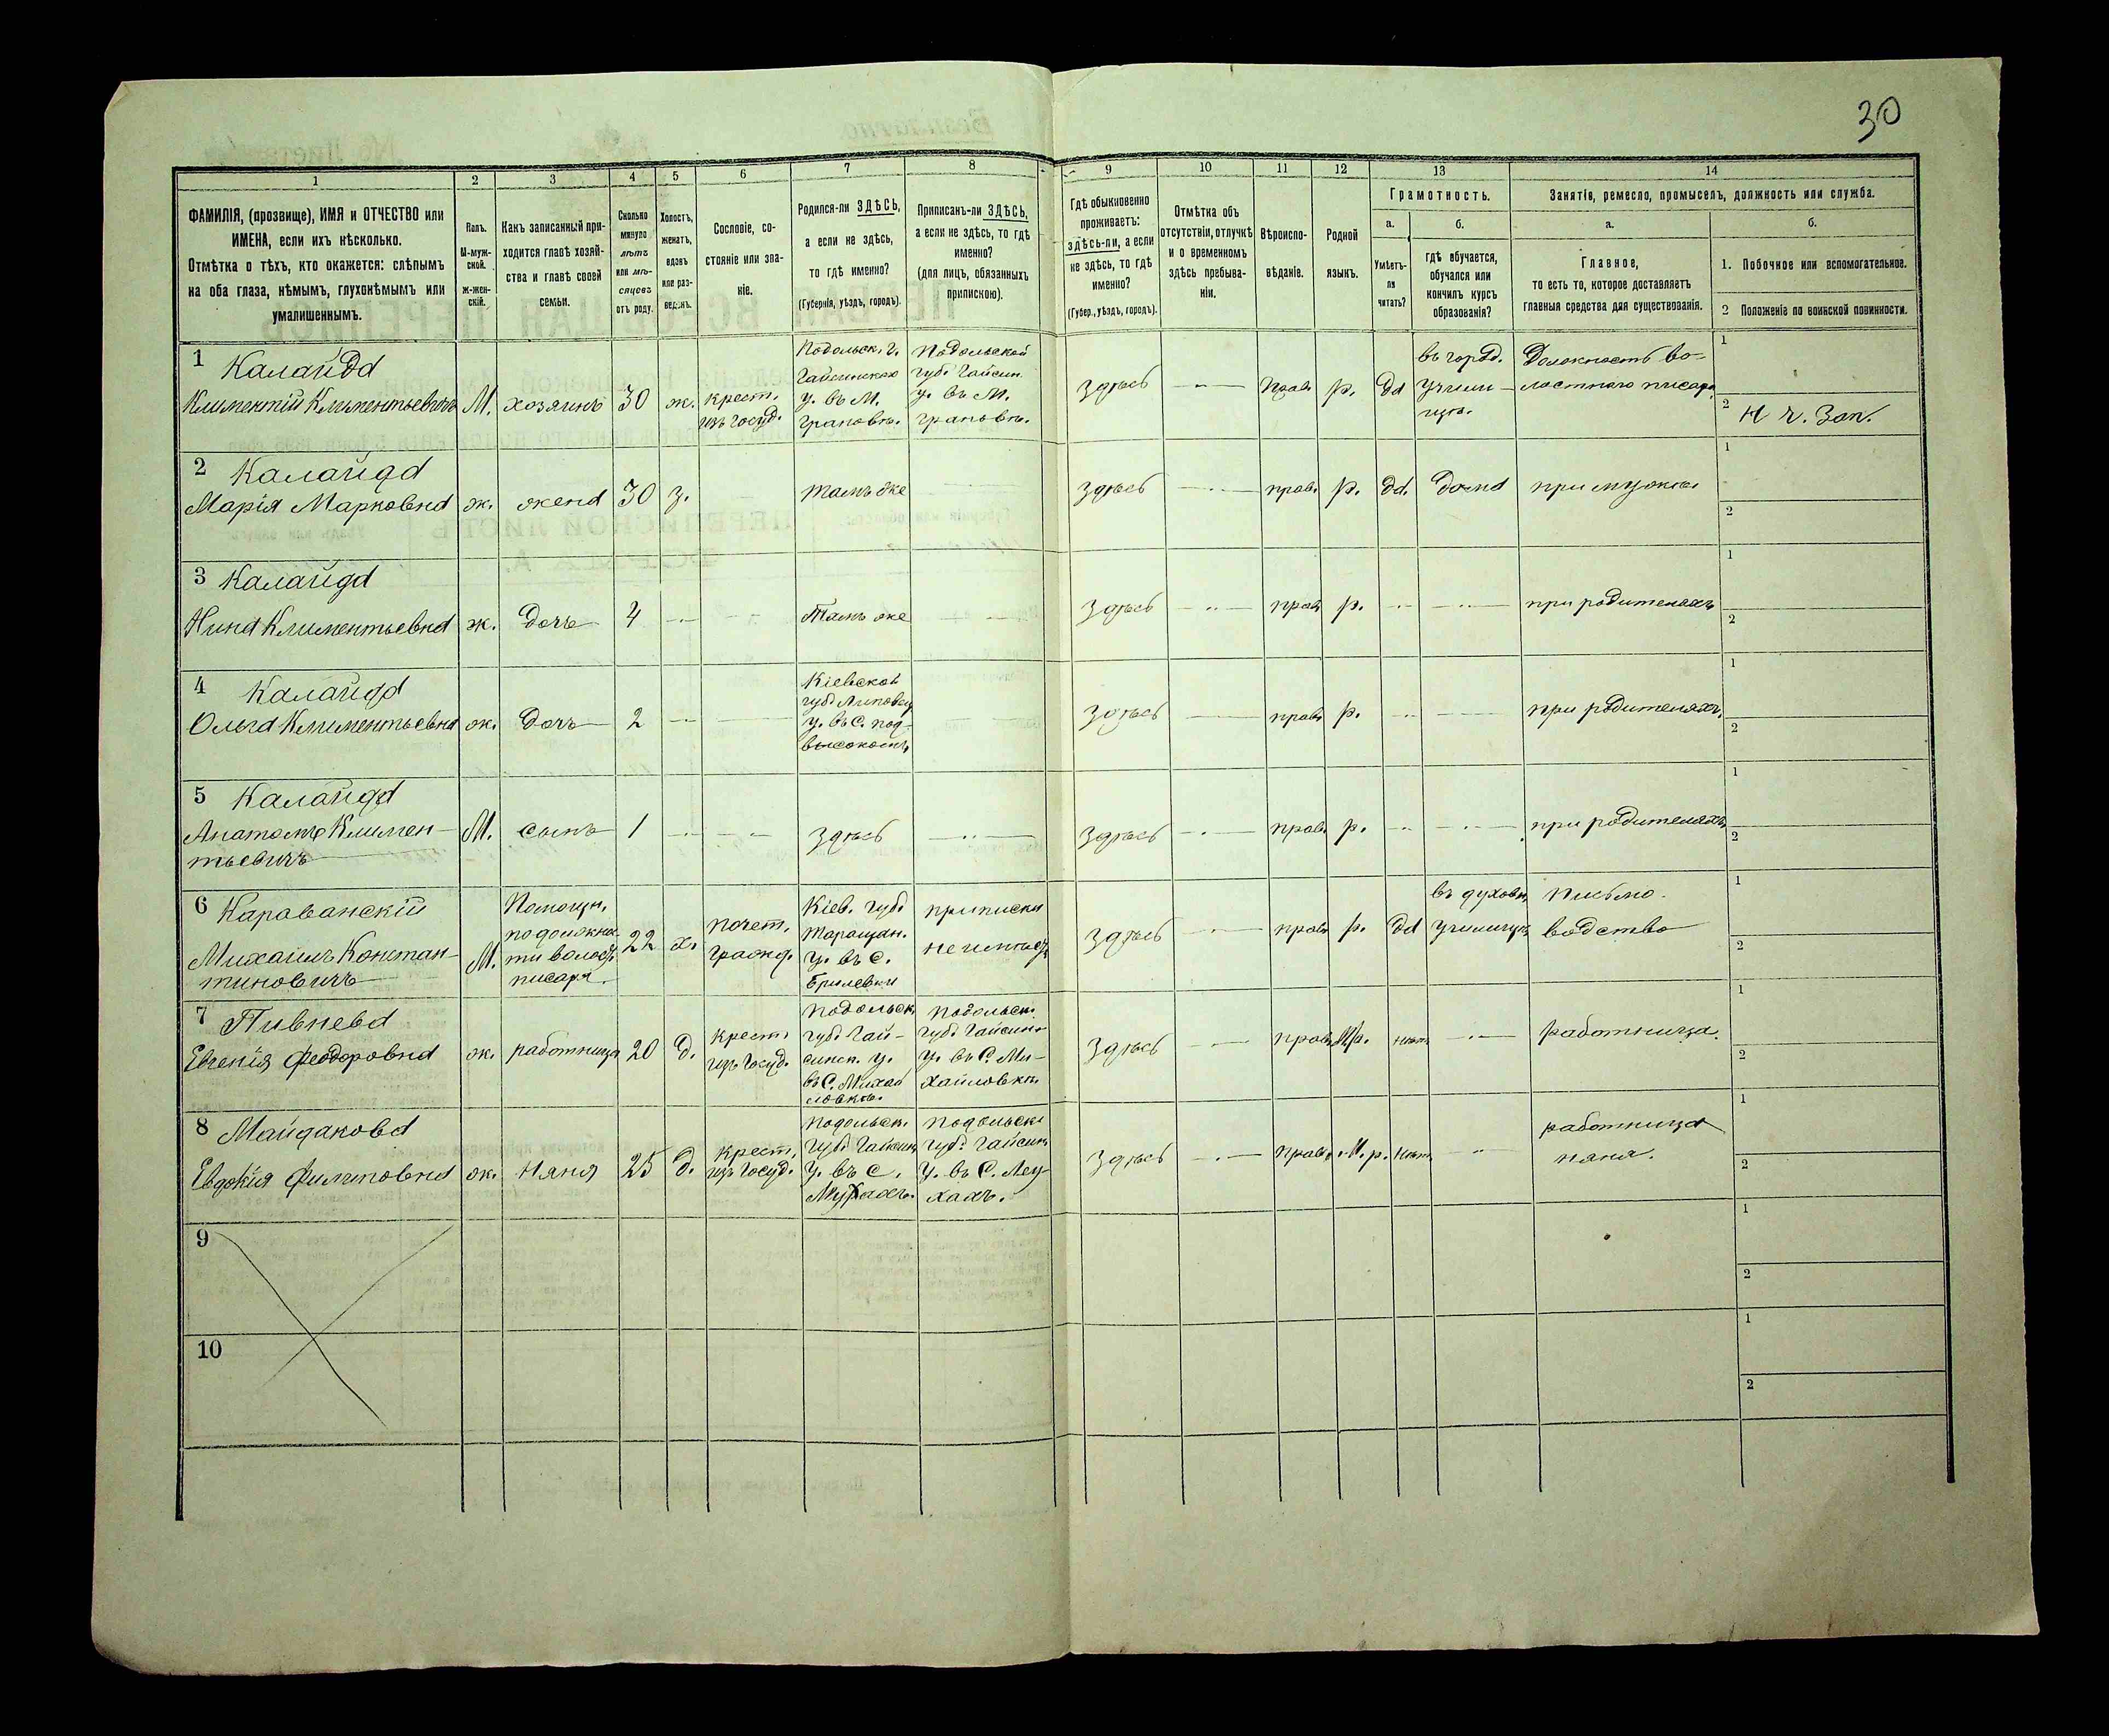 30
1 2 3 4 5 6 7 8 9 10 11 12 13 14
ФАМИЛІЯ, (прозвище), ИМЯ и ОТЧЕСТВО или
ИМЕНА, если ихъ нѣсколько.
Отмѣтка о тѣхъ, кто окажется: слѣпымъ
на оба глаза, нѣмымъ, глухонѣмымъ или
умалишеннымъ.
Полъ.
М-муж-
ской.
ж-жен-
скій.
Какъ записанный при-
ходится главѣ хозяй-
ства и главѣ своей
семьи.
Сколько
минуло
лѣтъ
или мѣ-
сяцевъ
отъ роду.
Холостъ,
женатъ,
вдовъ
или раз-
веденъ.
Сословіе, со-
стояніе или зва-
ніе.
Родился-ли ЗДѢСЬ,
а если не здѣсь,
то гдѣ именно?
(Губернія, уѣздъ, городъ).
Приписанъ-ли ЗДѢСЬ,
а если не здѣсь, то гдѣ
именно?
(для лицъ, обязанныхъ
припискою).
Гдѣ обыкновенно
проживаетъ:
здѣсь-ли, а если
не здѣсь, то гдѣ
именно?
(Губер., уѣздъ, городъ).
Отмѣтка объ
отсутствіи, отлучкѣ
и о временномъ
здѣсь пребыва-
ніи.
Вѣроиспо-
вѣданіе.
Родной
языкъ.
Грамотность.
а.
Умѣетъ-
ли
читать?
б.
гдѣ обучается,
обучался или
кончилъ курсъ
образованія?
Занятіе, ремесло, промыселъ, должность или служба.
а.
Главное,
то есть то, которое доставляетъ
главныя средства для существованія.
б.
1. Побочное или вспомогательное.
2 Положеніе по воинской повинности.
1 Калайда
Климентій Климентьевичъ
М.
хозяинъ
30
ж.
крест.
изъ госуд.
Подольск. г.
Гайсинскаго
у. въ М.
Грановѣ.
Подольской
губ. Гайсин.
у. въ М.
Грановѣ.
здѣсь
Прав.
р.
да
въ город.
училищѣ.
Должность во-
лостнаго писаря
1
2 Н ч. Зап.
2 Калайда
Марія Марковна
ж.
жена
30
з.
тамъ же
здѣсь
прав.
р.
да.
дома
при мужѣ
1
2
3 Калайда
Нина Климентьевна
ж.
Дочь
4
Тамъ же
здѣсь
прав.
р.
при родителяхъ
1
2
4 Калайда
Ольга Климентьевна
ж.
Дочь
2
Кіевской
губ. Липовец.
у. въ С. Под-
высокомъ
здѣсь
прав.
р.
при родителяхъ.
1
2
5 Калайда
Анатолій Климен-
тьевичъ
М.
сынъ
1
здѣсь
здѣсь
прав.
р.
при родителяхъ
1
2
6 Караванскій
Михаилъ Констан-
тиновичъ
М.
Помощн.
по должнос-
ти волост.
писаря.
22
х.
почет.
гражд.
Кіев. губ.
Таращан.
у. въ с.
приписки
не имѣетъ
здѣсь
прав.
р.
да
въ духовн.
училищѣ
Письмо-
водство
1
2
7 Пивнева
Евгенія Феодоровна
ж.
работница
20
д.
Крест.
изъ госуд.
Подольск.
губ. Гай-
синск. у.
въ С. Михай
ловкѣ.
Подольск.
губ. Гайсин.
у. въ С. Ми-
хайловкѣ.
здѣсь
прав.
М.р.
нѣтъ
работница.
1
2
8 Майдакова
Евдокія Филиповна
ж.
Няня
25
д.
Крест.
изъ госуд.
Подольск.
губ. Гайсин.
у. въ с.
Подольск.
губ. Гайсин.
у. въ С. Леу-
хахъ.
здѣсь
прав.
М. р.
нѣтъ
работница
няня.
1
2
9
1
2
10
1
2